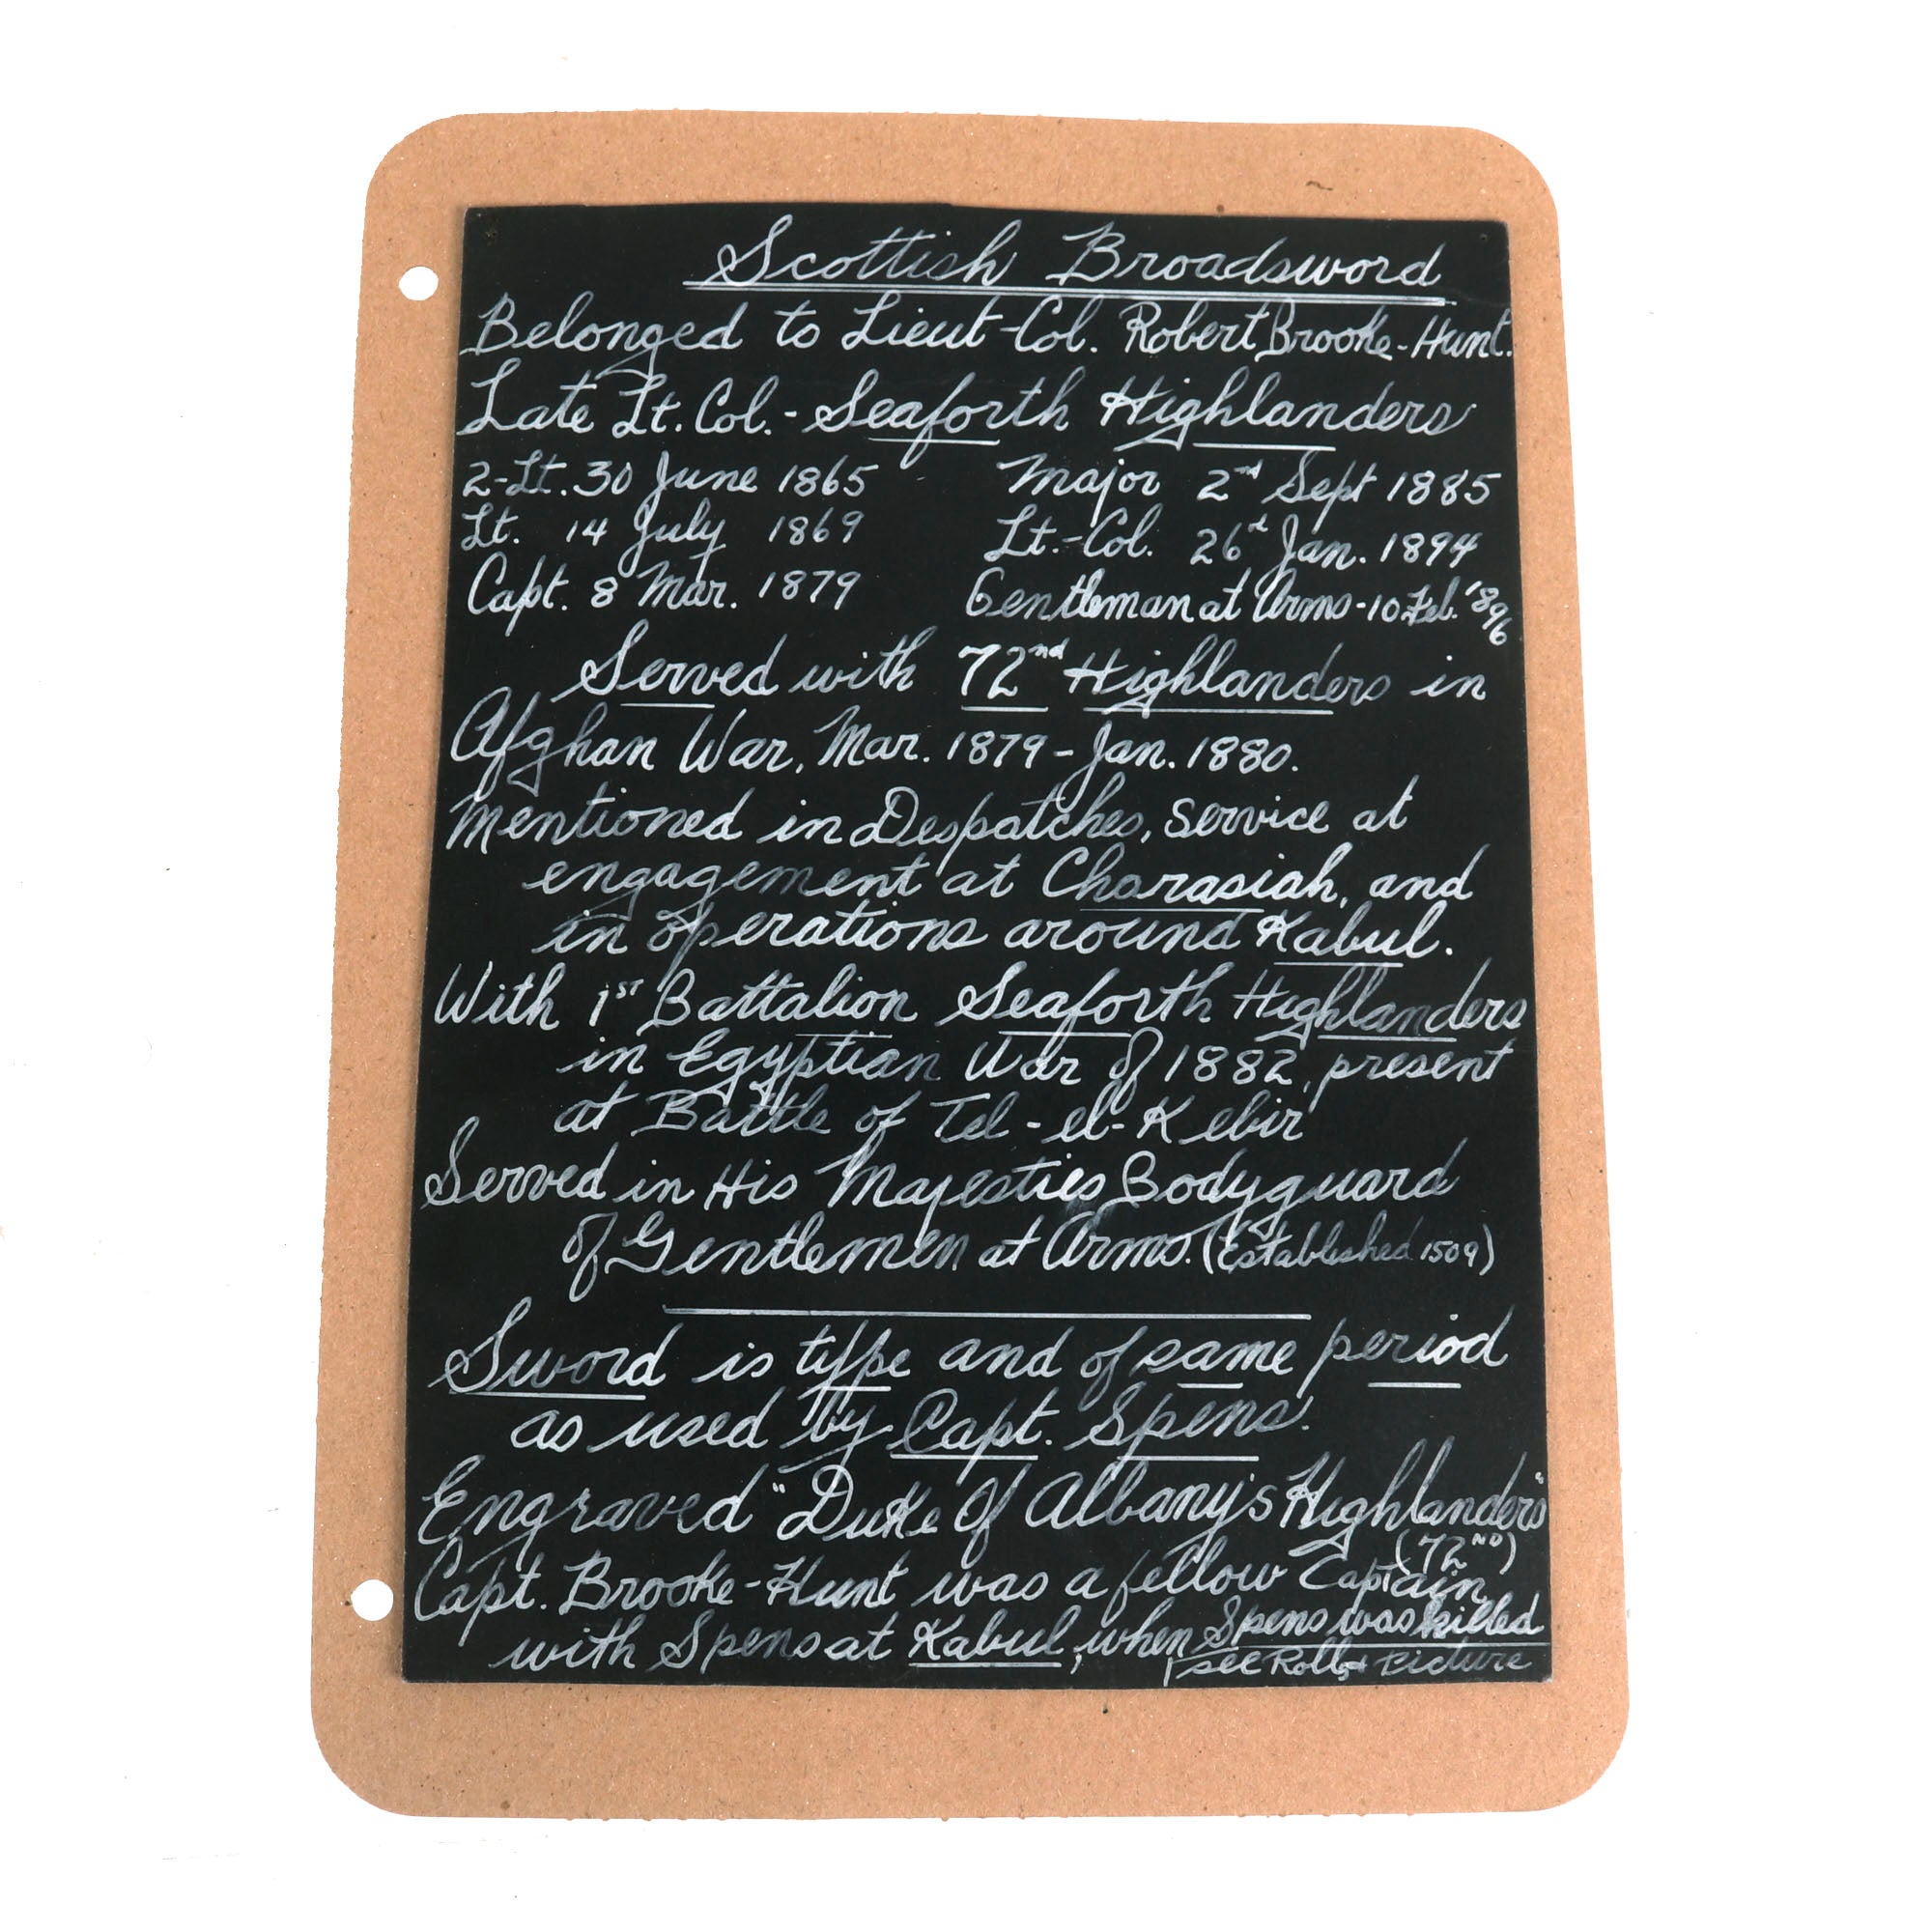 Scottish Broadsword
Belonged to Lieut-Col. Robert Brooke-Hunt.
Late Lt. Col. - Seaforth Highlanders
2-Lt. 30 June 1865 Major 2nd Sept 1885
Lt. 14 July 1869 Lt.-Col. 26 Jan. 1894
Capt. 8 Mar. 1879 Gentleman at Arms - 10 Feb. '896
Served with 72nd Highlanders in
Afghan War, Mar. 1879 - Jan. 1880.
Mentioned in Despatches, service at
engagement at Charasiah, and
in operations around Kabul.
With 1ST Battalion Seaforth Highlanders
in Egyptian War of 1882, present
at Battle of Tel-el-Kebir
Served in His Majesties Bodyguard
of Gentlemen at Arms. (Established 1509)
Sword is type and of same period
as used by Capt. Spens.
Engraved "Duke of Albany's Highlanders"
(72ND)
Capt. Brooke-Hunt was a fellow Captain
with Spens at Kabul, when Spens was killed
see Roll & Picture